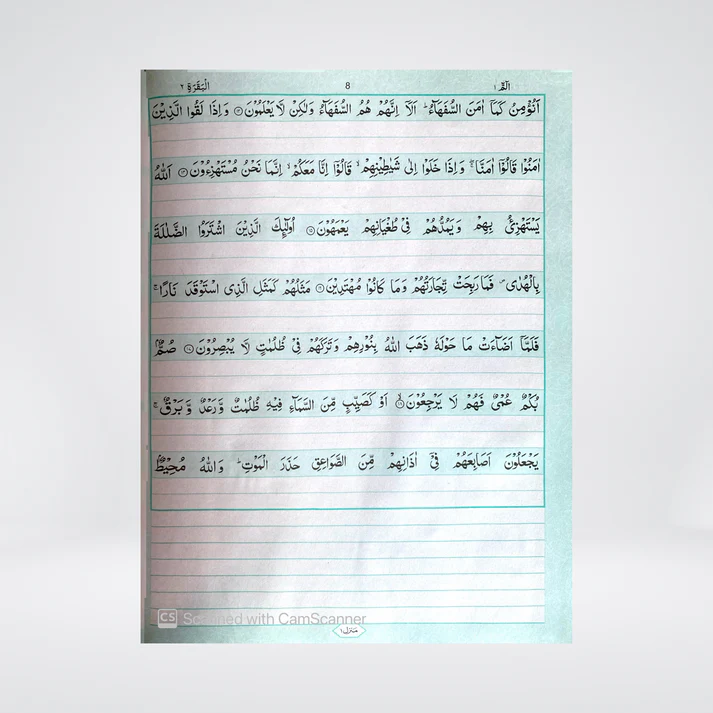 الٓمّٓ ١ 8 الْبَقَرَة ٢
اَنُؤْمِنُ كَمَاۤ اٰمَنَ السُّفَهَآءُ ؕ اَلَاۤ اِنَّهُمْ هُمُ السُّفَهَآءُ وَلٰكِنْ لَّا يَعْلَمُوْنَ ۝۱۳ وَاِذَا لَقُوا الَّذِيْنَ
اٰمَنُوْا قَالُوْۤا اٰمَنَّا ۚۖ وَاِذَا خَلَوْا اِلٰى شَيٰطِيْنِهِمْ ۙ قَالُوْۤا اِنَّا مَعَكُمْ ۙ اِنَّمَا نَحْنُ مُسْتَهْزِءُوْنَ ۝۱۴ اَللّٰهُ
يَسْتَهْزِئُ بِهِمْ وَيَمُدُّهُمْ فِيْ طُغْيَانِهِمْ يَعْمَهُوْنَ ۝۱۵ اُولٰٓئِكَ الَّذِيْنَ اشْتَرَوُا الضَّلٰلَةَ
بِالْهُدٰى ۪ فَمَا رَبِحَتْ تِّجَارَتُهُمْ وَمَا كَانُوْا مُهْتَدِيْنَ ۝۱۶ مَثَلُهُمْ كَمَثَلِ الَّذِى اسْتَوْقَدَ نَارًا ۚ
فَلَمَّاۤ اَضَآءَتْ مَا حَوْلَهٗ ذَهَبَ اللّٰهُ بِنُوْرِهِمْ وَتَرَكَهُمْ فِيْ ظُلُمٰتٍ لَّا يُبْصِرُوْنَ ۝۱۷ صُمٌّۢ
بُكْمٌ عُمْيٌ فَهُمْ لَا يَرْجِعُوْنَ ۝۱۸ اَوْ كَصَيِّبٍ مِّنَ السَّمَآءِ فِيْهِ ظُلُمٰتٌ وَّرَعْدٌ وَّبَرْقٌ ۚ
يَجْعَلُوْنَ اَصَابِعَهُمْ فِيْۤ اٰذَانِهِمْ مِّنَ الصَّوَاعِقِ حَذَرَ الْمَوْتِ ؕ وَاللّٰهُ مُحِيْطٌۢ
CS Scanned with CamScanner
منزل ١